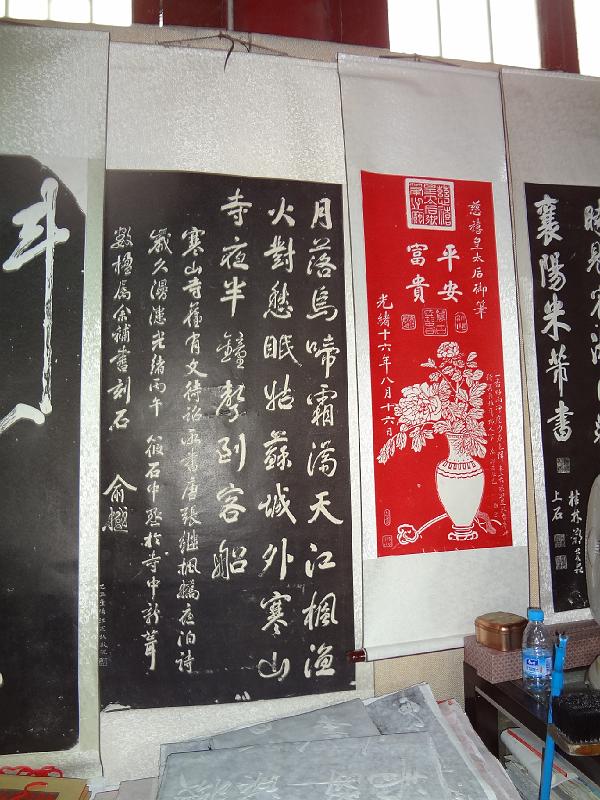 襄陽米芾書
桂林
上石
慈禧皇太后御筆
平安
富貴
光緒十六年八月十六日
月落烏啼霜滿天江楓漁
火對愁眠姑蘇城外寒山
寺夜半鐘聲到客船
寒山寺舊有文待詔所書唐張繼楓橋夜泊詩
歲久漫漶光緒丙午 筱石中丞於寺中新葺
數楹屬余補書刻石 俞樾